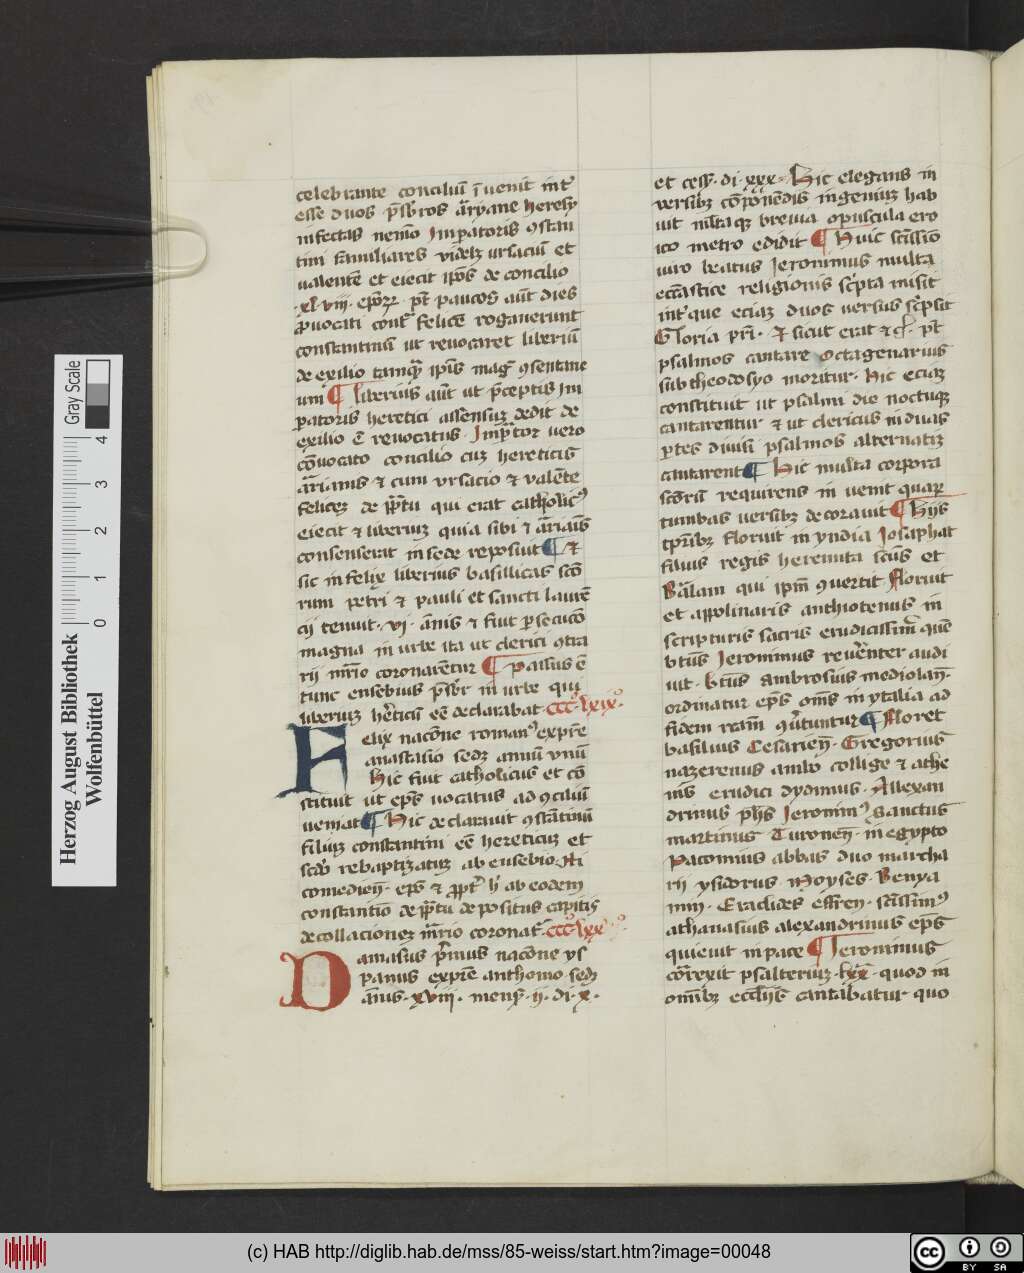 celebrante conciliū īuenit int᷒
esse duos p̄sbr̄os arryane heres᷒
infectas nemō Imperatoris ꝯstan
tini familiares videlꝫ vrsaciū et
valentē et eiecit ip̄os de concilio
xl viii ep̄orꝝ pt᷒ paucos aūt dies
ꝓuocati cont᷒ felicē rogauerunt
constantinū ut reuocaret liberiū
de exilio tamqͣ ip̄is mag᷒ ꝯsentane
um ¶ liberius aūt ut p̄ceptis Im
peratoris heretici assensuꝫ dedit de
exilio ē reuocatus Imꝑator vero
cōuocato concilio cuꝫ hereticis
arrianis ⁊ cum vrsacio ⁊ valēte
felicꝫ de ꝑp̄tu qui erat catholic᷒
eiecit ⁊ liberiuꝫ quia sibi ⁊ arrianis
consenserat in sede reposuit ¶ ⁊
sic infelix liberius basillicas sco᷒
rum petri ⁊ pauli et sancti laure
cij tenuit vi annis ⁊ fuit ꝑsecucō
magna in urbe ita ut clerici ꝯtra
rij mr̄io coronarētur ¶ passus ē
tunc eusebius p̄sbr̄ in urbe qui
liberiuꝫ hēticū eē declarabat ccc lxix
Felix nacōne roman᷒ ex pr̄e
anastasio sedꝫ annū vnū
Hic fuit catholicus et cō
stituit ut ep̄s uocatus ad ꝯciliū
ueniat ¶ Hic declarauit ꝯstātinū
filiuꝫ constantini eē hereticuꝫ et
scdo rebaptizatuꝫ ab eusebio Ni
comedien̄ ep̄o ⁊ ꝓpt᷒ h᷒ ab eodem
constantio de ꝑp̄tu depositus capitis
decollacionꝫ mr̄rio coronat᷒ ccc lxx
Damasus p̄mus nacōne ys
panus ex pr̄e anthonio sedꝫ
ānis xviii mens᷒ ii di x
et cess᷒ di xxx Hic elegans in
versibꝫ cōponēdis ingeniuꝫ hab
uit multaqꝫ breuia opuscula ero
ico metro edidit ¶ Huic scīssīo
uiro beatus Jeronimus multa
ecciastice religionis sc̄pta misit
int᷒ que eciaꝫ duos versus sc̄psit
Gloria pr̄i ⁊ sicut erat ⁊ c᷒ pt᷒
psalmos cantare octagenarius
sub theodosyo moritur Hic eciaꝫ
constituit ut psalmi die noctuqꝫ
cantarentur ⁊ ut clericus in duas
ꝑtes diuisi psalmos alternatiꝫ
cantarent ¶ Hic multa corpora
scōrū requirens in uenit quarꝫ
tumbas versibꝫ decorauit ¶ Hijs
tꝑribꝫ floruit in yndia Josaphat
filius regis heremita scūs et
Bālam qui ip̄m ꝯuertit floruit
et appolinaris anthiotenus in
scripturis sacris erudicissim᷒ quē
btūs Jeronimus reuērnter audi
uit btūs Ambrosius mediolan̄
ordinatur ep̄s oms in ytalia ad
fidem rcām ꝯūtuntur ¶ Floret
basilius Cesarien̄ Gregorius
nazerenus ambo college ⁊ athe
nis erudici dydimus Allexan
drinus ph̄s Jeronim᷒ Sanctus
martinus Turonen̄ in egypto
Pacomius abbas duo marcha
rij ysidorus Moyses Benya
min Eraclides effren scīssim᷒
athanasius alexandrinus ep̄s
quieuit in pace ¶ Jeronimus
corexit psalteriuꝫ lxx quod in
omībꝫ eccliis cantabatur quo
Herzog August Bibliothek
Wolfenbüttel
Gray Scale
0 1 2 3 4
(c) HAB http://diglib.hab.de/mss/85-weiss/start.htm?image=00048
cc BY SA